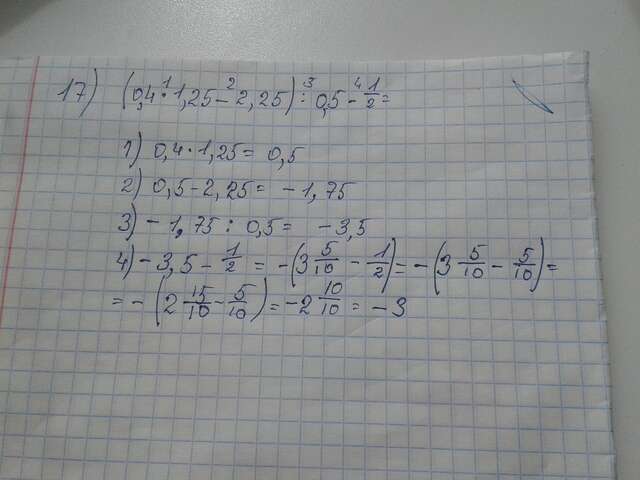 17) (0,4 · 1,25 - 2,25) : 0,5 - 1/2 =
1) 0,4 · 1,25 = 0,5
2) 0,5 - 2,25 = -1,75
3) -1,75 : 0,5 = -3,5
4) -3,5 - 1/2 = -(3 5/10 - 1/2) = -(3 5/10 - 5/10) =
= -(2 15/10 - 5/10) = -2 10/10 = -3